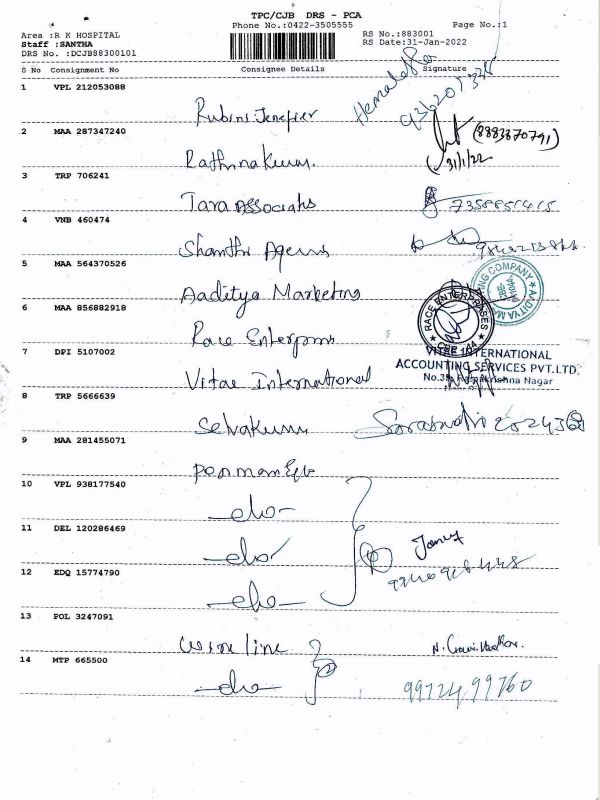 TPC/CJB DRS - PCA
Phone No.:0422-3505555 Page No.:1
Area :R K HOSPITAL RS No.:883001
Staff :SANTHA RS Date:31-Jan-2022
DRS No. :DCJB88300101
S No Consignment No Consignee Details Signature
Hemalatha
1 VPL 212053088
Rubini Jenefier
2 MAA 287347240 (8883870791)
Rathnakumar 31/1/22
3 TRP 706241
Tara Associates 7358851415
4 VNB 460474
Shanthi Agencies
5 MAA 564370526
Aaditya Marketing
6 MAA 856882918 RACE ENTERPRISES
Race Enterprises CBE
7 DPI 5107002 VITAE INTERNATIONAL
ACCOUNTING SERVICES PVT.LTD.
Vitae International Nagar
8 TRP 5666639
Selvakumar
9 MAA 281455071
10 VPL 938177540
-do-
11 DEL 120286469
-do-
12 EDQ 15774790
-do-
13 POL 3247091
14 MTP 665500
-do- 9972499760